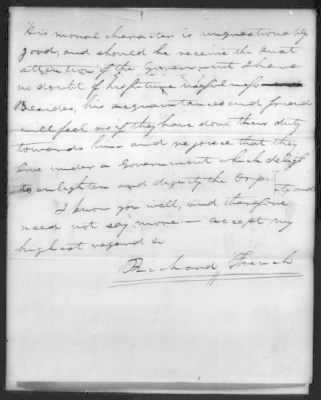 His moral character is unquestionably
good, and should he receive the kind
attention of the Government I have
no doubt of his future usefulness
Besides, his acquaintances and friends
will feel as if they have done their duty
towards him and rejoice that they
live under a Government which delights
to enlighten and dignify the
I know you well, and therefore
need not say more — accept my
highest regard &
Richard French